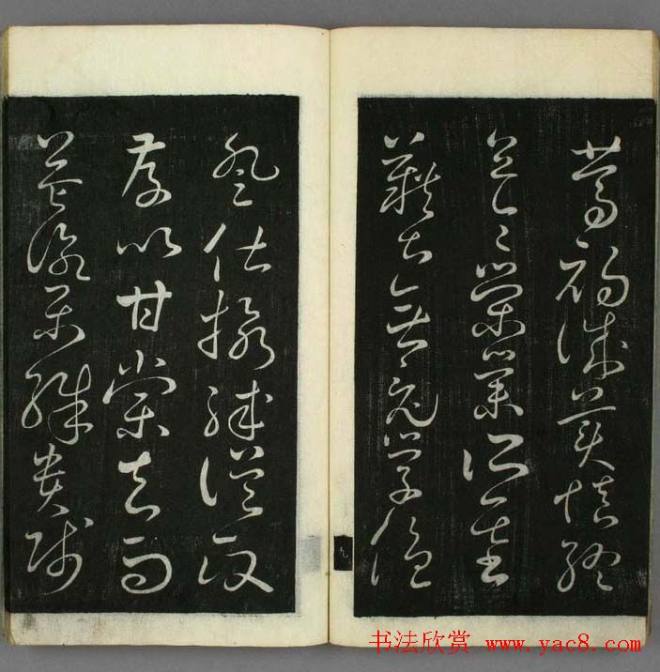 篤初誠美慎終
宜令榮業所基
籍甚無竟學優
登仕攝職從政
存以甘棠去而
益詠樂殊貴賤
九
书法欣赏 www.yac8.com